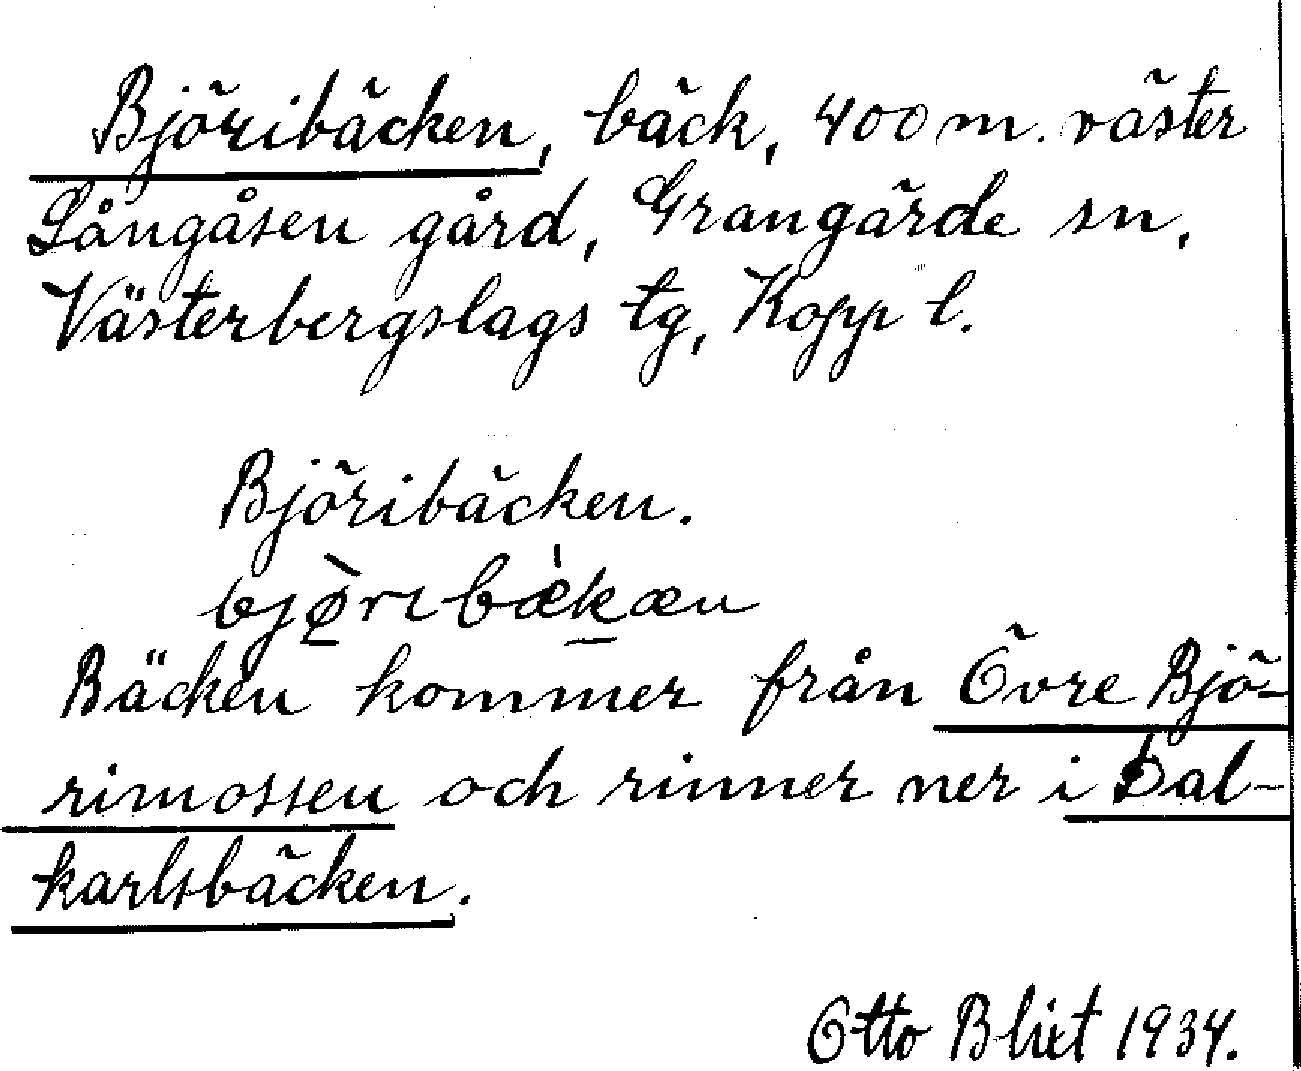 Björibäcken, bäck, 400 m. väster
Långåsen gård, Grangärde sn,
Västerbergslags tg, Kopp l.
Björibäcken.
bjø̀ribækæn
Bäcken kommer från Övre Bjö-
rimossen och rinner ner i Dal-
karlsbäcken.
Otto Blixt 1934.